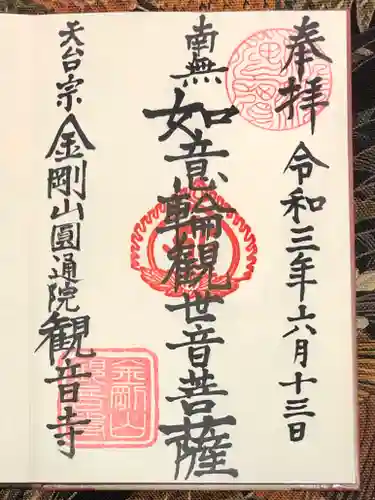 奉拝
令和三年六月十三日
南無
如意輪観世音菩薩
天台宗 金剛山圓通院 観音寺
金剛山
観音寺